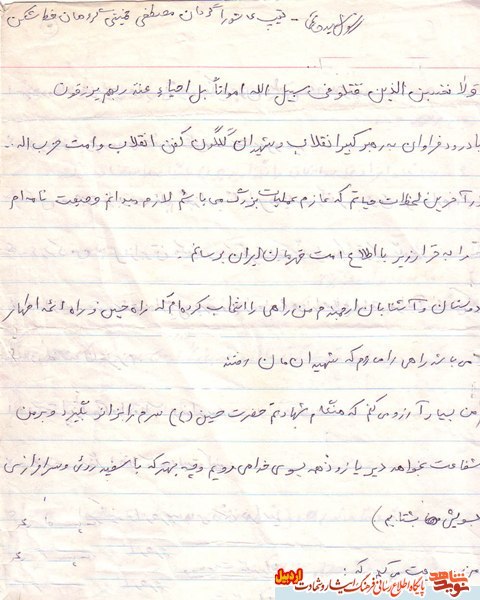 رسول حیدرخانی - تیپ عاشورا گردان مصطفی خمینی گروهان خط شکن
ولا تحسبن الذین قتلو فی سبیل الله امواتاً بل احیاء عند ربهم یرزقون
با درود فراوان به رهبر کبیر انقلاب و شهیدان گلگون کفن انقلاب و امت حزب اله.
در آخرین لحظات حیاتم که عازم عملیات بزرگ می باشم لازم میدانم وصیت نامه ام
را به قرار زیر با اطلاع امت قهرمان ایران برسانم.
دوستان و آشنایان ارجمندم من راهی را انتخاب کرده ام که راه حسین و راه ائمه اطهار
می باشد راهی را میروم که شهیدانمان رفتند
من بسیار آرزو می کنم که هنگام شهادتم حضرت حسین (ع) سرم را بزانو بگیرد و بر من
شفاعت بخواهد دیر یا زود همه بسوی خدا می رویم و چه بهتر که با سفید روئی و سرافرازی
بسویش بشتابیم)
می کنم که:
نوید شاهد
پایگاه اطلاع رسانی فرهنگ ایثار و شهادت
اردبیل